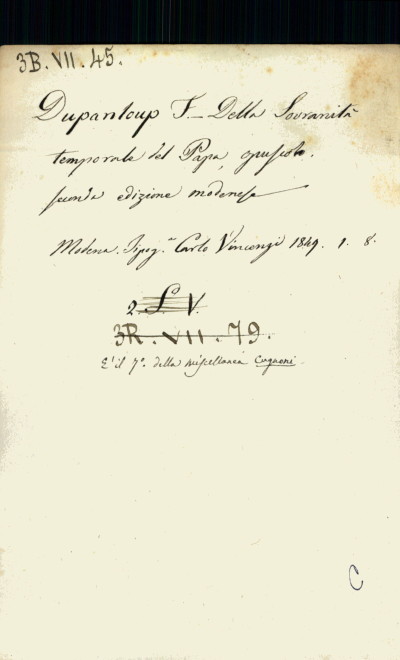 3B. VII. 45.
Dupanloup F. – Della Sovranità
temporale del Papa, opuscolo.
seconda edizione modenese
Modena. Tipog.ª Carlo Vincenzi 1849. 1. 8.
2 S.º V.
3R. VII. 79.
È il 7º. della miscellanea Cugnoni.
C